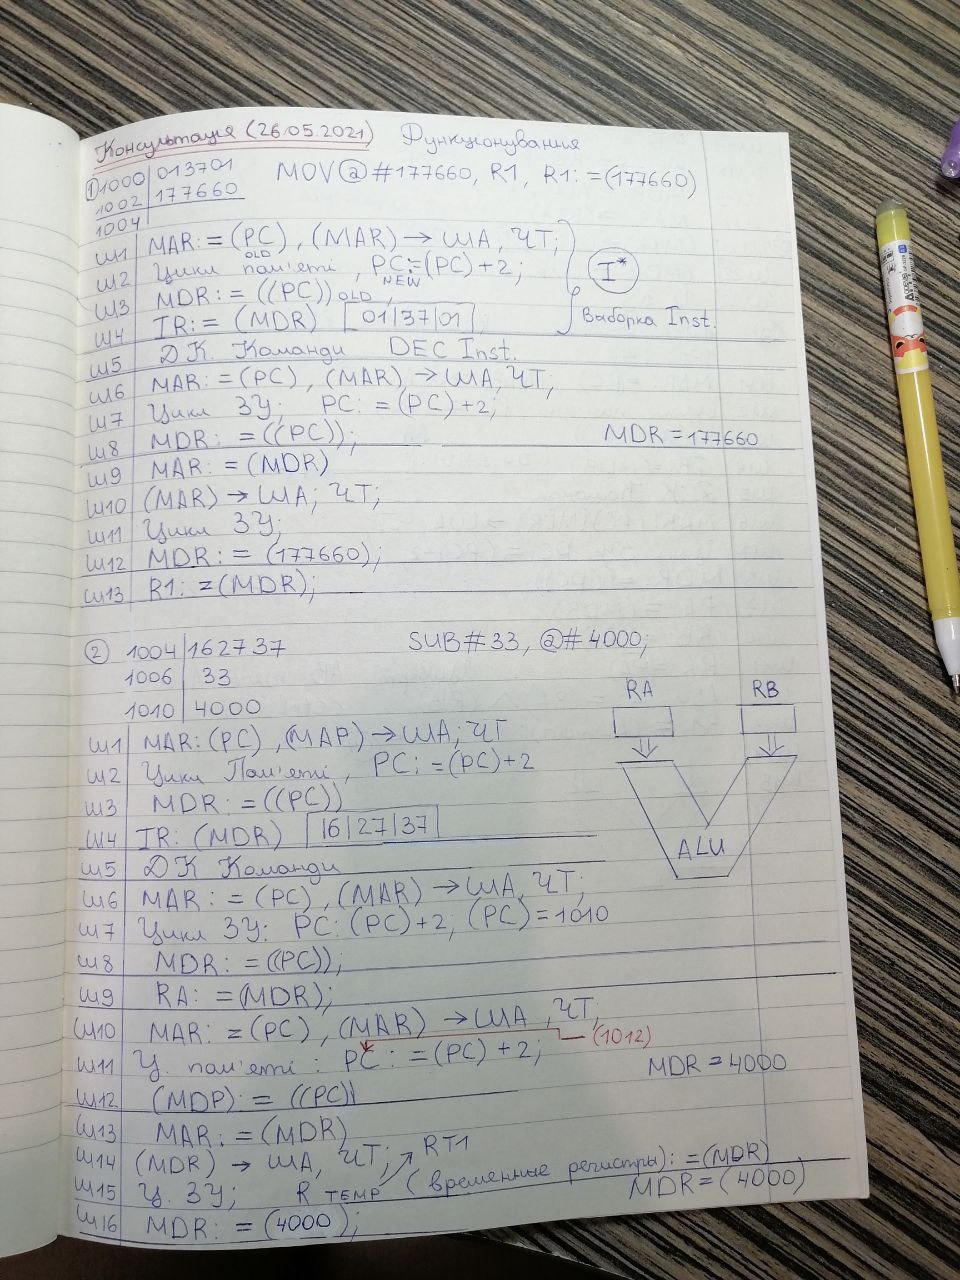 Консультація (26.05.2021) Функціонування
① 1000 | 013701 MOV @ #177660, R1, R1: = (177660)
1002 | 177660
1004
Ш1 MAR: = (PC), (MAR) → ША, ЧТ;
OLD
Ш2 Цикл пам'яті, PC: = (PC) + 2;
NEW
I*
Ш3 MDR: = ((PC)) OLD,
Ш4 IR: = (MDR) 01|37|01
Выборка Inst.
Ш5 ДК Команди DEC Inst.
Ш6 MAR: = (PC), (MAR) → ША, ЧТ,
Ш7 Цикл ЗУ; PC: = (PC) + 2;
Ш8 MDR: = ((PC)); MDR = 177660
Ш9 MAR: = (MDR)
Ш10 (MAR) → ША; ЧТ;
Ш11 Цикл ЗУ;
Ш12 MDR: = (177660);
Ш13 R1: = (MDR);
② 1004 | 162737 SUB #33, @#4000;
1006 | 33
1010 | 4000
RA RB
Ш1 MAR: (PC), (MAP) → ША; ЧТ
Ш2 Цикл Пам'яті, PC: = (PC) + 2
Ш3 MDR: = ((PC))
Ш4 IR: (MDR) 16|27|37
ALU
Ш5 ДК Команди
Ш6 MAR: = (PC), (MAR) → ША, ЧТ;
Ш7 Цикл ЗУ: PC: (PC) + 2; (PC) = 1010
Ш8 MDR: = ((PC));
Ш9 RA: = (MDR);
Ш10 MAR: = (PC), (MAR) → ША, ЧТ;
(1012)
Ш11 Ц. пам'яті: PC: = (PC) + 2; MDR = 4000
Ш12 (MDP): = ((PC))
Ш13 MAR: = (MDR)
Ш14 (MDR) → ША, ЧТ; RT1
Ш15 Ц. ЗУ; R TEMP (временные регистры): = (MDR)
MDR = (4000)
Ш16 MDR: = (4000);